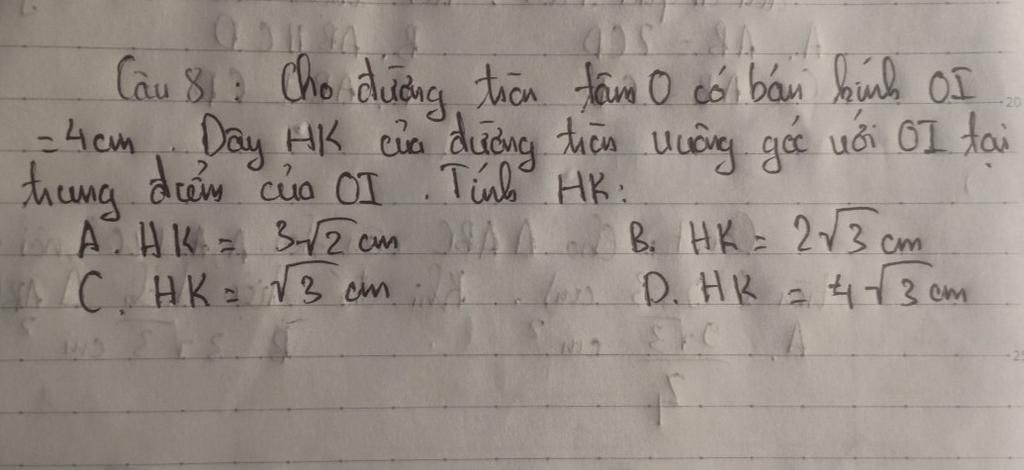 Câu 8 : Cho đường tròn tâm O có bán kính OI
= 4 cm . Dây HK của đường tròn vuông góc với OI tại
trung điểm của OI . Tính HK :
A. HK = 3√2 cm B. HK = 2√3 cm
C. HK = √3 cm D. HK = 4√3 cm